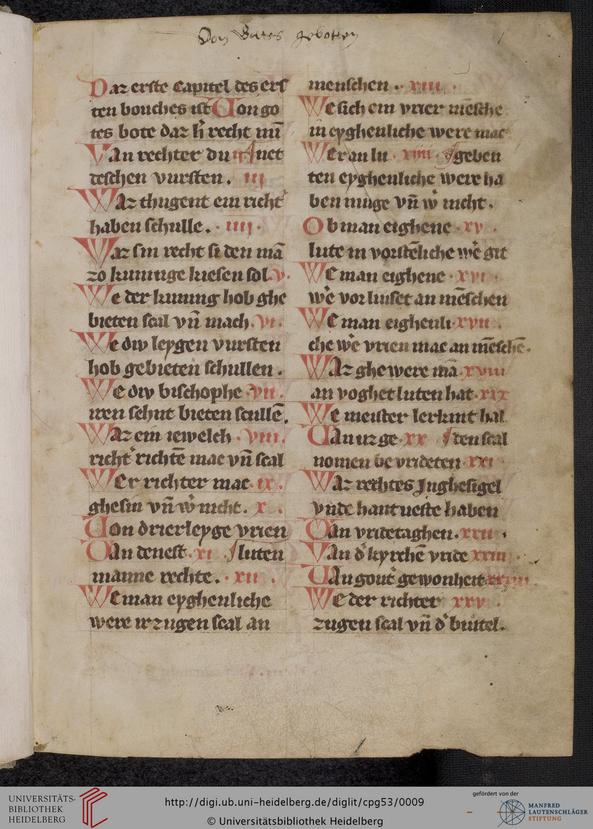 Von Gotes gebotten
Daz erste Capitel des ers
ten bouches ist Uon go
tes bote daz h̓ recht mū
Van rechter du ij net
teschen vursten . iij
Waz thugent ein richt̓
haben schulle . iiij .
Waz sin recht si den mā
zo kuninge kiesen sol . v .
We der kuning hob ghe
bieten scal vn̄ mach . vi .
We div leygen vursten
hob gebieten schullen .
We div bischophe . vii .
iren schut bieten scullē .
Waz ein iewelch . viii .
richt̓ richtē mac vn̄ scal
Wer richter mac . ix .
ghesin vn̄ w̓ nicht . x .
Uon drierleyge vrien
Uan denest . xi luten
manne rechte . . xii .
We man eyghenliche
were irzugen scal an
menschen . . xiii .
We sich ein vrier mēsche
in eyghenliche were mac
Wer an lu . xiiii . geben
ten eyghenliche were ha
ben muge vn̄ w̓ nicht .
Ob man eighene . xv .
lute in vorstēliche we̓ git
We man eighene . xvi .
we̓ vorluset an mēschen
We man eighenli . xvii .
che we̓ vrien mac an mēschē .
Waz ghewere mā . xviii
an voghet luten hat . xix
We meister lerkint hal
Uan urge . xx den scal
nomen be vrideten . xxi .
Waz rechtes Jnghesigel
vnde hantueste haben
Uan vridetaghen . xxii .
Van d̓ kyrchē vride xxiii .
Uan gout̓ gewonheit xxiiii .
We der richter xxv .
zugen scal vn̄ d̓ butel .
UNIVERSITÄTS-
BIBLIOTHEK
HEIDELBERG
http://digi.ub.uni-heidelberg.de/diglit/cpg53/0009
© Universitätsbibliothek Heidelberg
gefördert von der
MANFRED
LAUTENSCHLÄGER
STIFTUNG